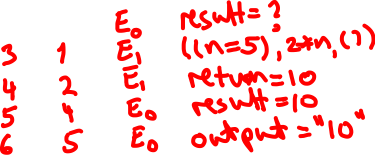 E₀ result = ?
3 1 E₁ ((n=5), 2*n, (?)
4 2 E₁ return=10
5 4 E₀ result=10
6 5 E₀ output="10"